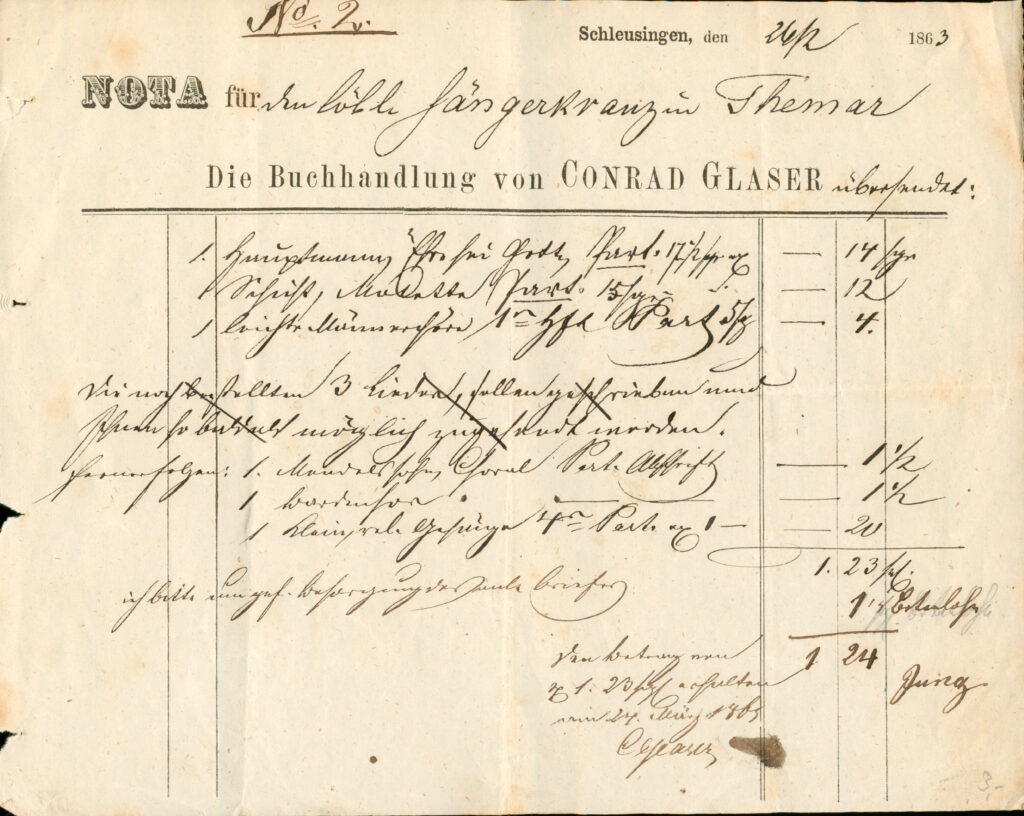 No. 2.
Schleusingen, den 26/2 1863
NOTA für den löbl. Sängerkranz in Themar
Die Buchhandlung von CONRAD GLASER übersendet:
1. Hauptmann, Ehre sei Gott, Part. 17 1/2 sgr — 14 sgr
1 Schicht, Motette Part. 15 sgr — 12
1 leichte Männerchöre 1s Hft Part — 4.
Die noch bestellten 3 Lieder, sollen geschrieben und
Ihnen so bald als möglich zugesandt werden.
Ferner folgen: 1. Mendelssohn, Choral Part. Abschrift — 1 1/2
1 — 1 1/2
1 Klein, rel. Gesänge 4s Part. 1 — 20
1. 23 sgr.
ich bitte um gef. Besorgung des Briefes
1 Botenlohn
1 24
Den Betrag von
1. 23 sgr erhalten
24. März 1863
C Glaser
Jung
3.-